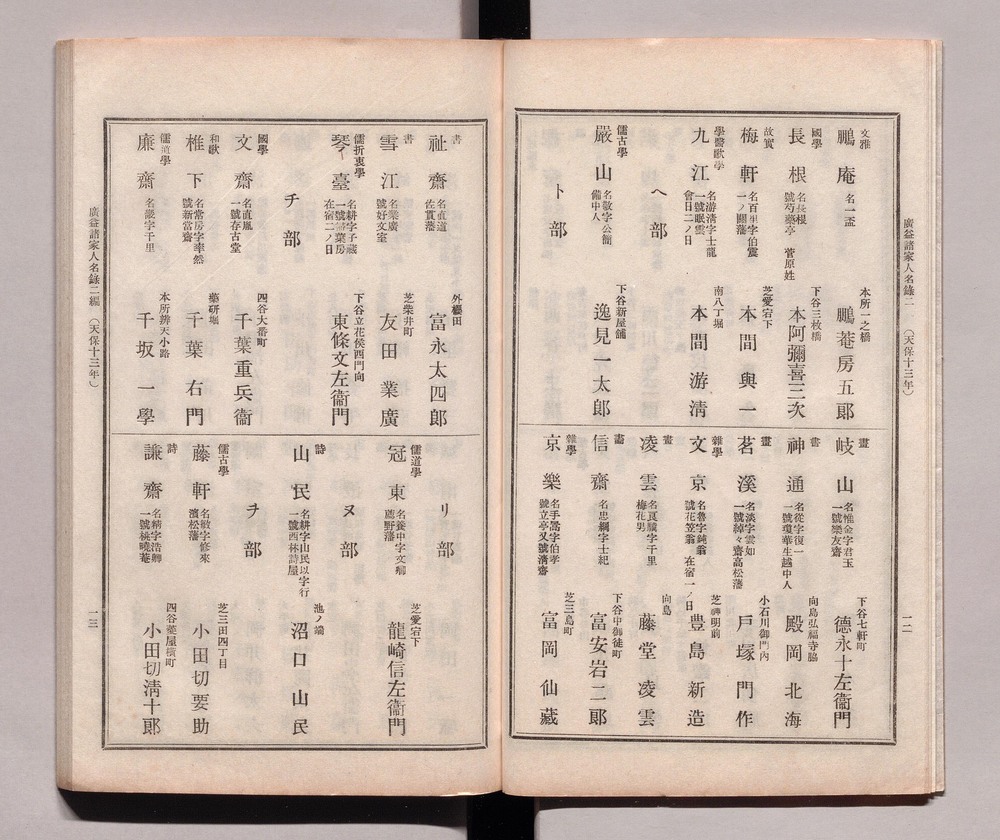 廣益諸家人名錄二 （天保十三年）
文雅
鵬庵 名一盃
本所一之橋
鵬菴房五郎
國學
長根 名長根 號芍藥亭 菅原姓
下谷三枚橋
本阿彌喜三次
故實
梅軒 名百里字伯震 一ノ關藩
芝愛宕下
本間與一
學醫歌學
九江 名游淸字士龍 一號眠雲 會日二ノ日
南八丁堀
本間游淸
ヘ部
儒古學
嚴山 名敬字公簡 備中人
下谷新屋舗
逸見一太郎
ト部
畫
岐山 名惟金字君玉 一號樂友齋
下谷七軒町
德永十左衞門
書
神通 名從字復一 一號瓊華生越中人
向島弘福寺脇
殿岡北海
畫
茗溪 名淡字雲如 一號綽々齋高松藩
小石川御門內
戶塚門作
雜學
文京 名魯字鈍翁 號花笠翁 在宿一ノ日
芝神明前
豊島新造
畫
凌雲 名眞驥字千里 梅花男
向島
藤堂凌雲
畵
信齋 名忠綱字士紀
下谷中御徒町
富安岩二郎
雜學
京樂 名手嵩字伯孝 號立亭又號淸齋
芝三島町
富岡仙藏
一二
書
祉齋 名直道 佐貫藩
外櫻田
富永太四郎
書
雪江 名業廣 號好文室
芝柴井町
友田業廣
儒折衷學
琴臺 名耕字子藏 一號蕗葉房 在宿二ノ日
下谷立花侯西門向
東條文左衞門
チ部
國學
文齋 名直胤 一號存古堂
四谷大番町
千葉重兵衞
和歌
椎下 名常房字率然 號新當齋
藥硏堀
千葉右門
儒道學
廉齋 名嚴字千里
本所辨天小路
千坂一學
リ部
儒道學
冠東 名養中字文卿 鷹野藩
芝愛宕下
龍崎信左衞門
ヌ部
詩
山民 名耕字山民以字行 一號西林詩屋
池ノ端
沼口山民
ヲ部
儒古學
藤軒 名敏字修來 濱松藩
芝三田四丁目
小田切要助
詩
謙齋 名精字浩卿 一號桃曉菴
四谷藥屋橫町
小田切淸十郎
廣益諸家人名錄二編 （天保十三年）
一三